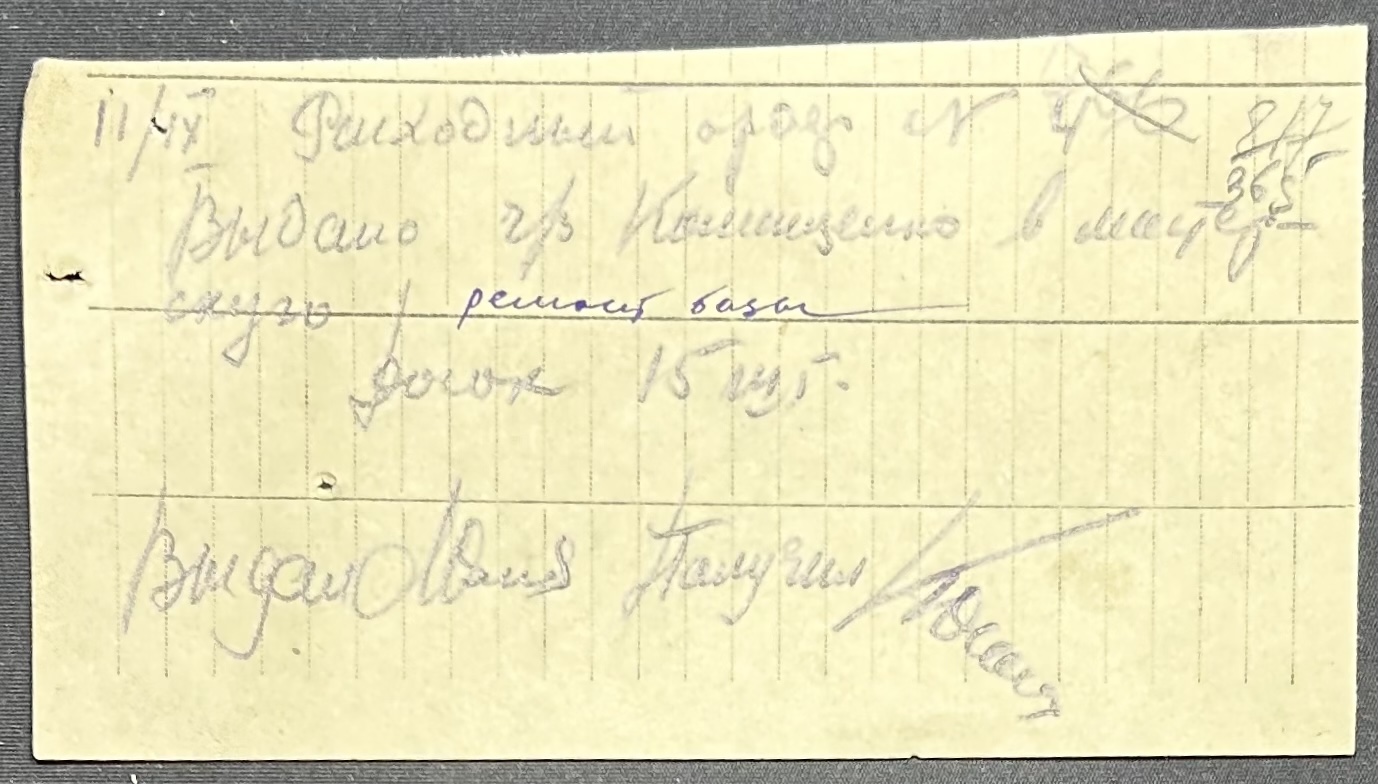 11/IX Расходный ордер №
8/7
365
Выдано ч/з Котищенко в мастер-
скую ремонт базы
досок 15 шт.
Выдал Получил